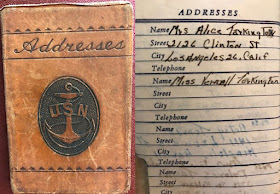 Addresses
U.S.N.
ADDRESSES
Name Mrs Alice Tarkington
Street 2126 Clinton St
City Los Angeles 26. Calif
Telephone
Name Miss Tarkington
Street
City
Telephone
Name
Street
City
Telephone
Name
Street
City
Telephone
Name
Street